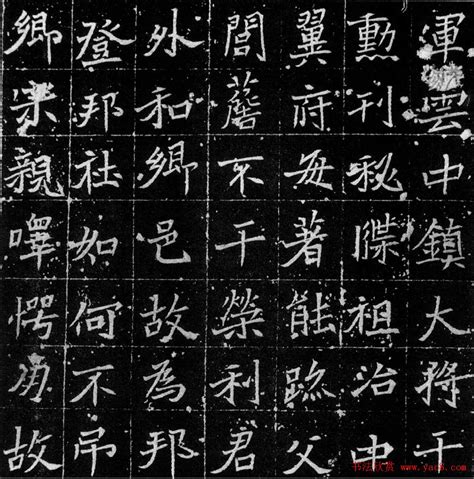 軍雲中鎮大將干
勳刊秘牒祖治中
翼府每著能跡父
閭不干榮利君
外和鄉邑故為邦
登邦社如何不弔
鄉宗親愕用故
书法欣赏 www.yac8.com